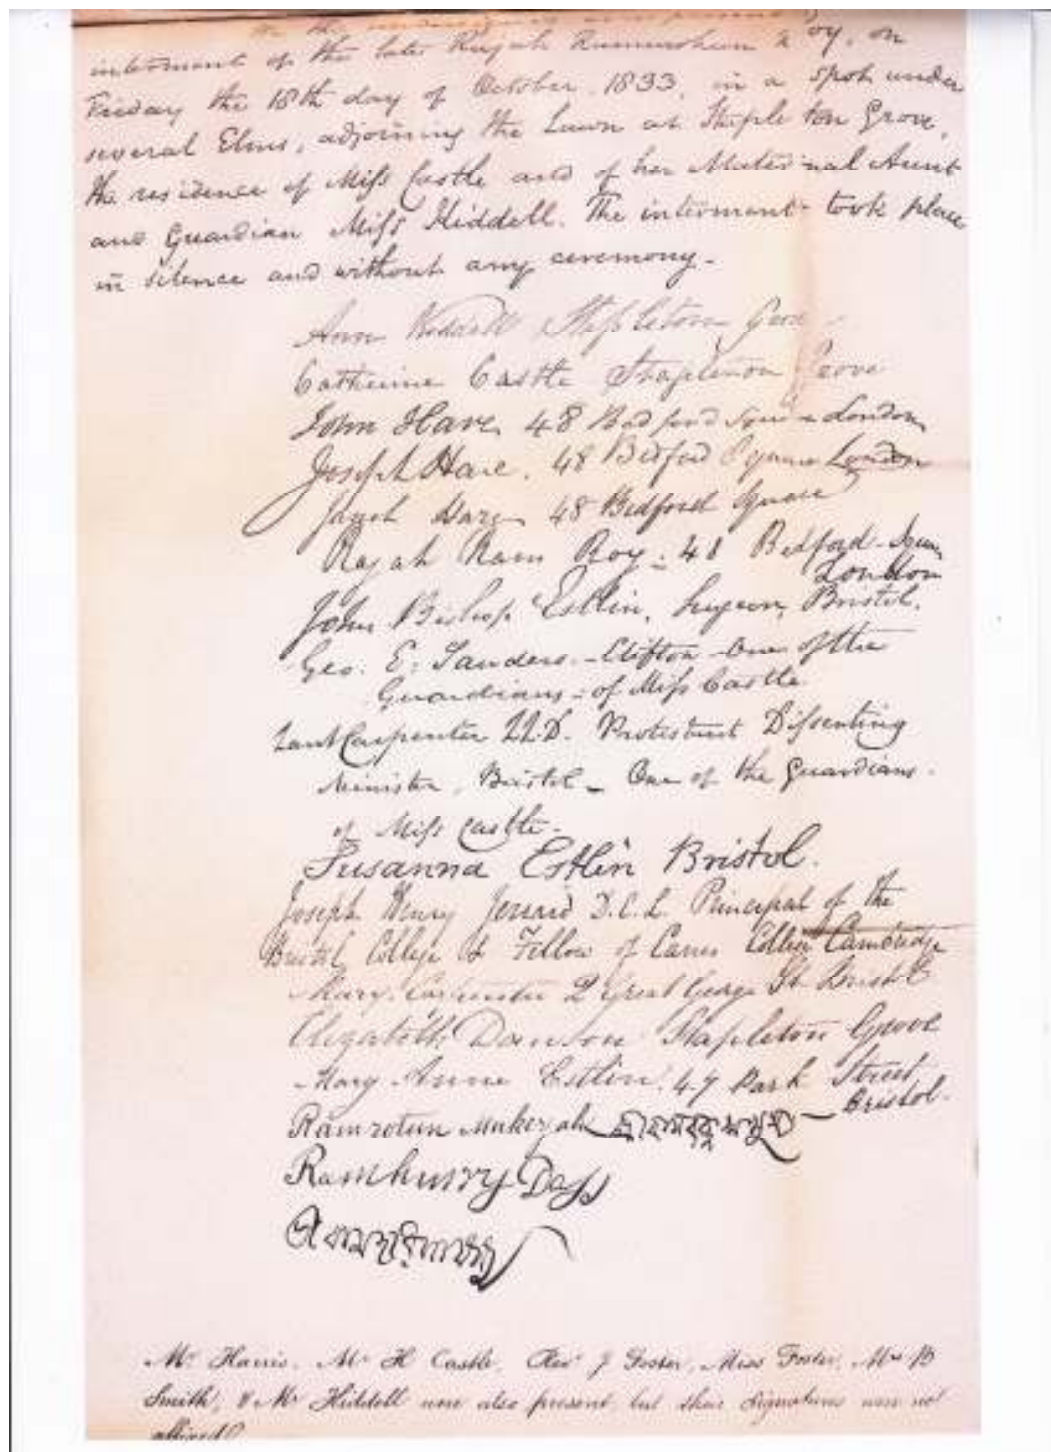 interment of the late Rajah Rammohun Roy, on
Friday the 18th day of October, 1833, in a spot under
several Elms, adjoining the Lawn at Stapleton Grove,
the residence of Miss Castle and of her Maternal Aunt
and Guardian Miss Kiddell. The interment took place
in silence and without any ceremony.
Ann Kiddell Stapleton Grove
Catherine Castle Stapleton Grove
John Hare 48 Bedford Square London
Joseph Hare. 48 Bedford Square London
Hare 48 Bedford Square
Rajah Ram Roy. 48 Bedford Square
London
John Bishop Estlin, Surgeon, Bristol.
Geo. E. Sanders. - Clifton - One of the
Guardians - of Miss Castle.
Lant Carpenter LL.D. Protestant Dissenting
Minister, Bristol - One of the Guardians
of Miss Castle.
Susanna Estlin Bristol.
Joseph Henry Jerrard D.C.L. Principal of the
Bristol College & Fellow of Caius College Cambridge
Mary Carpenter 2 Great George St. Bristol
Elizabeth Dawson Stapleton Grove
Mary Anne Estlin. 47 Park Street
Bristol.
Ramrotun Mukerjah
Ramhurry Dass
শ্রী রামহরি দাস
Mr Harris, Mr H Castle, Revd J Foster, Miss Foster, Mrs B
Smith, & Mr Kiddell were also present, but their Signatures were not
affixed